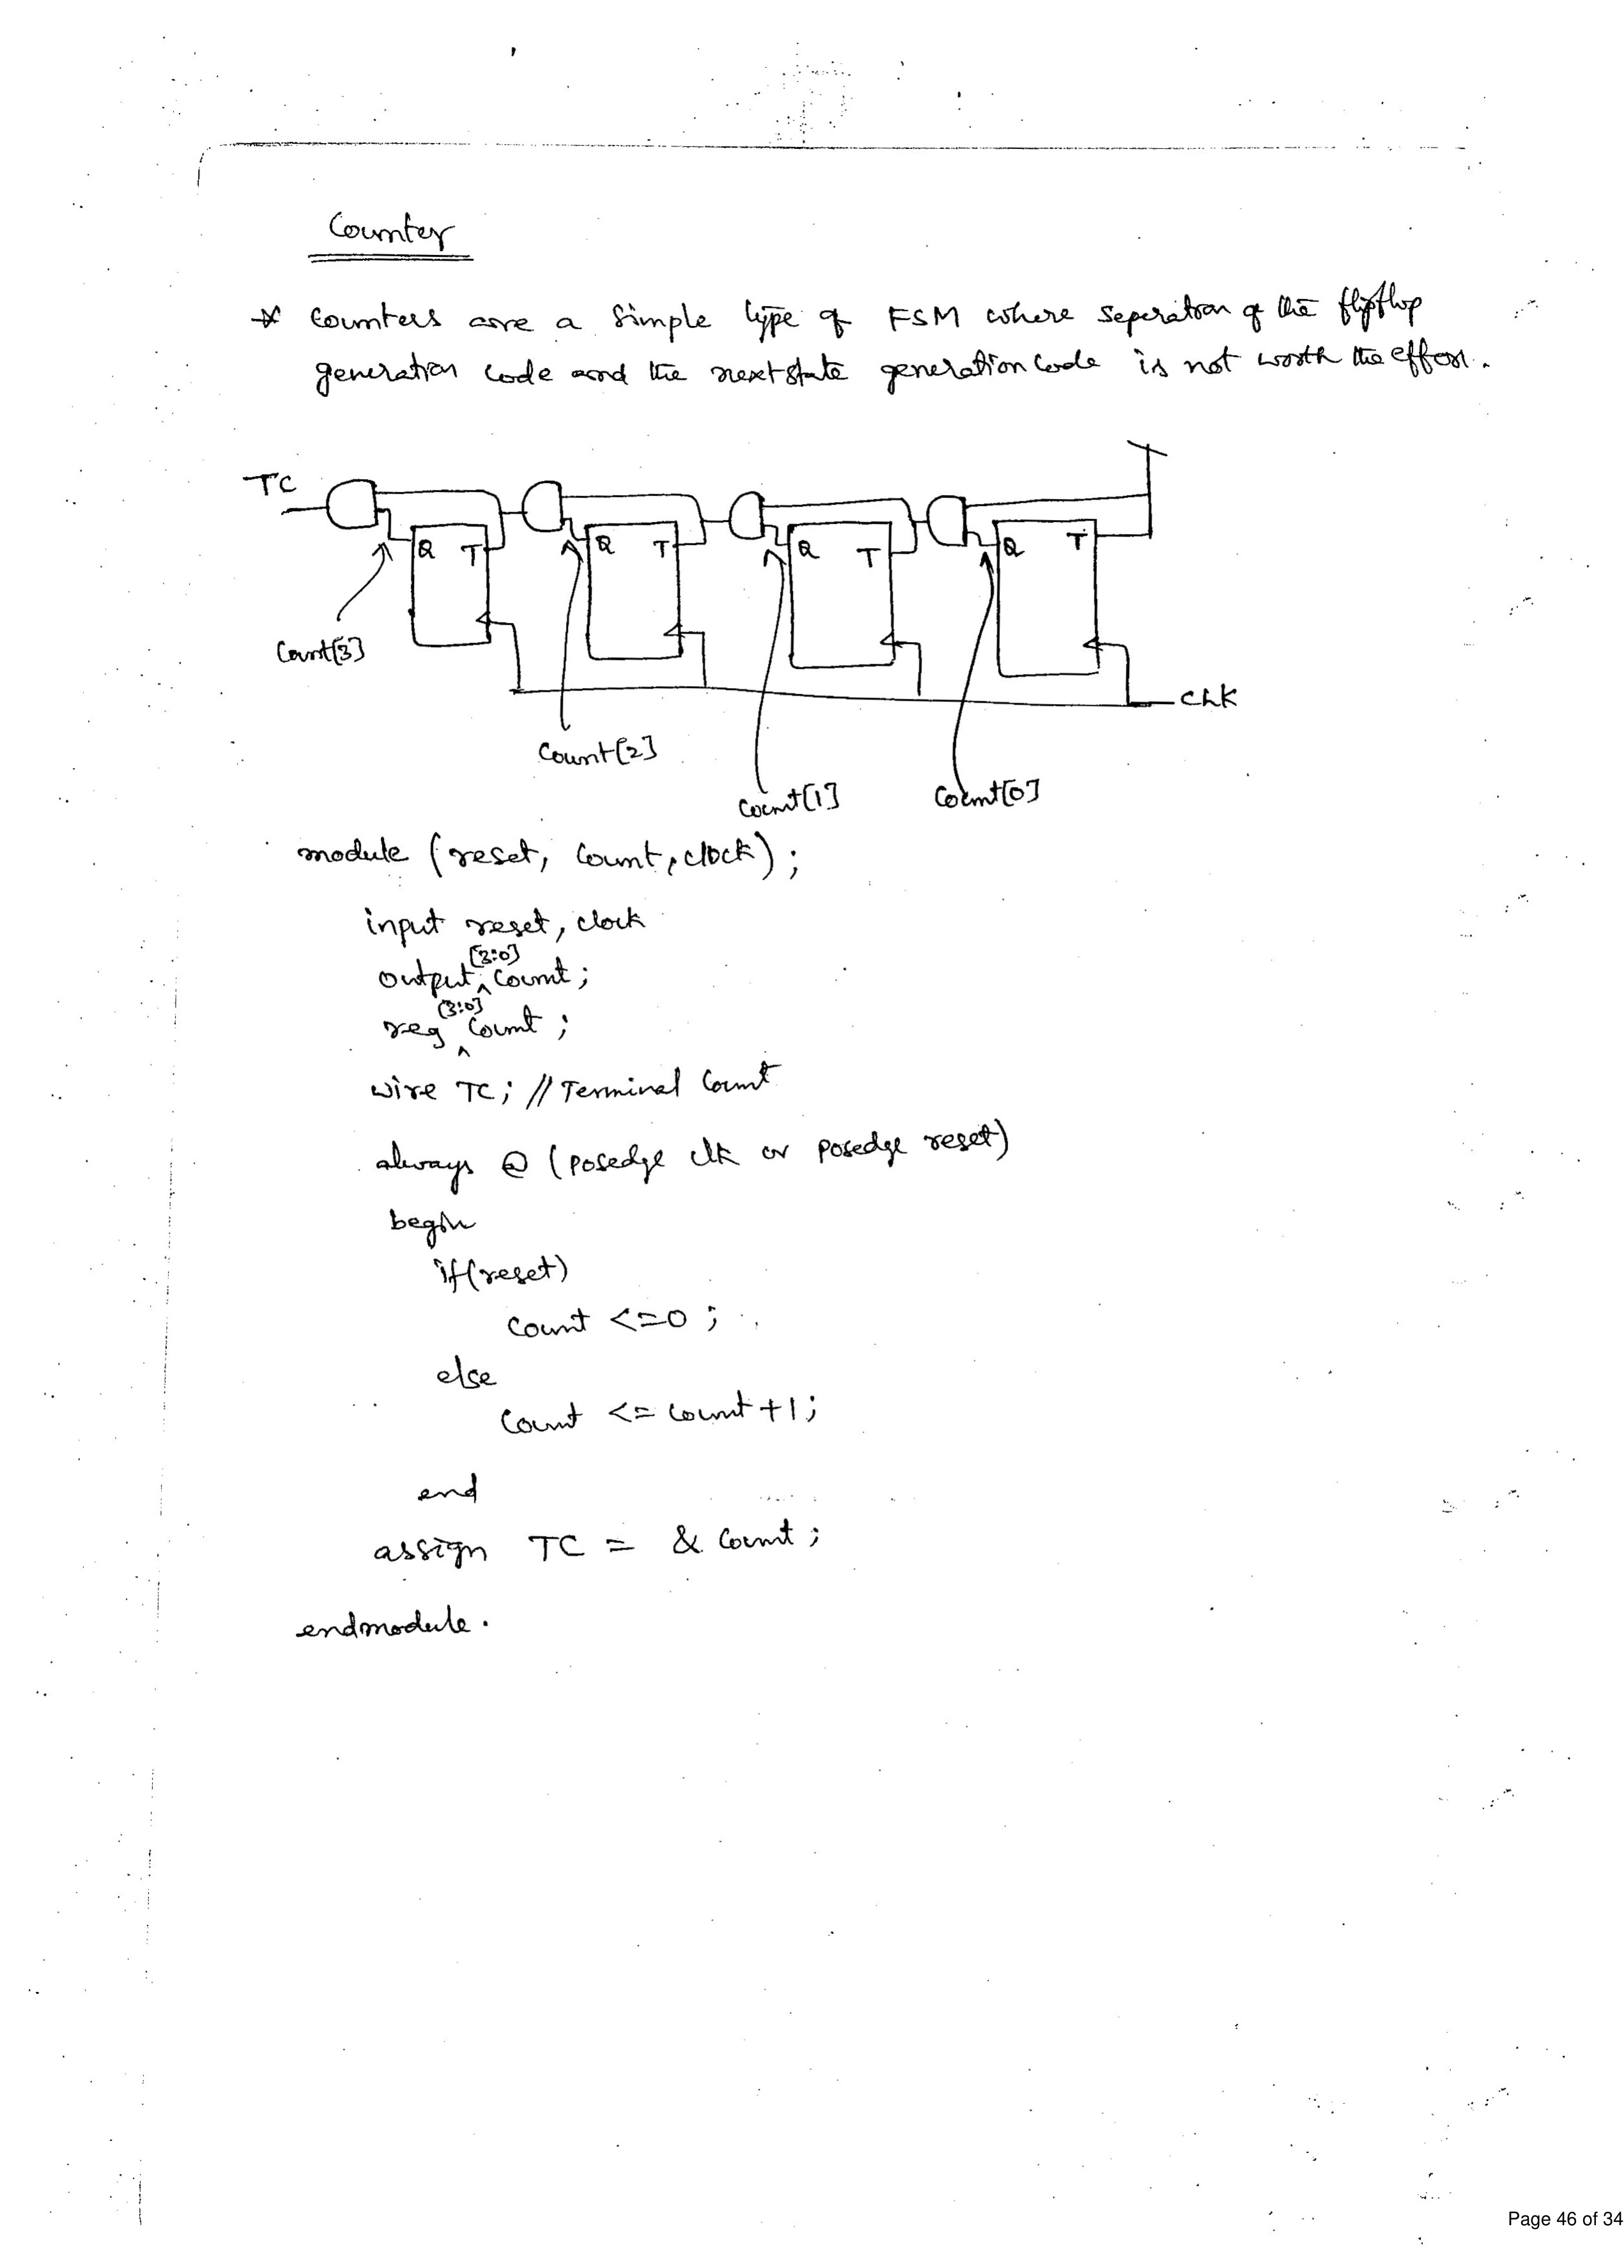 Counter
* Counters are a Simple type of FSM where seperation of the flipflop
generation code and the nextstate generation code is not worth the effort.
TC
Q T Q T Q T Q T
Count[3]
CLK
Count[2]
Count[1] Count[0]
module (reset, count, clock);
input reset, clock
[3:0]
output ^ count;
[3:0]
reg ^ count;
wire TC; // Terminal Count
always @ (posedge clk or posedge reset)
begin
if(reset)
count <=0;
else
Count <= count+1;
end
assign TC = & Count;
endmodule.
Page 46 of 34